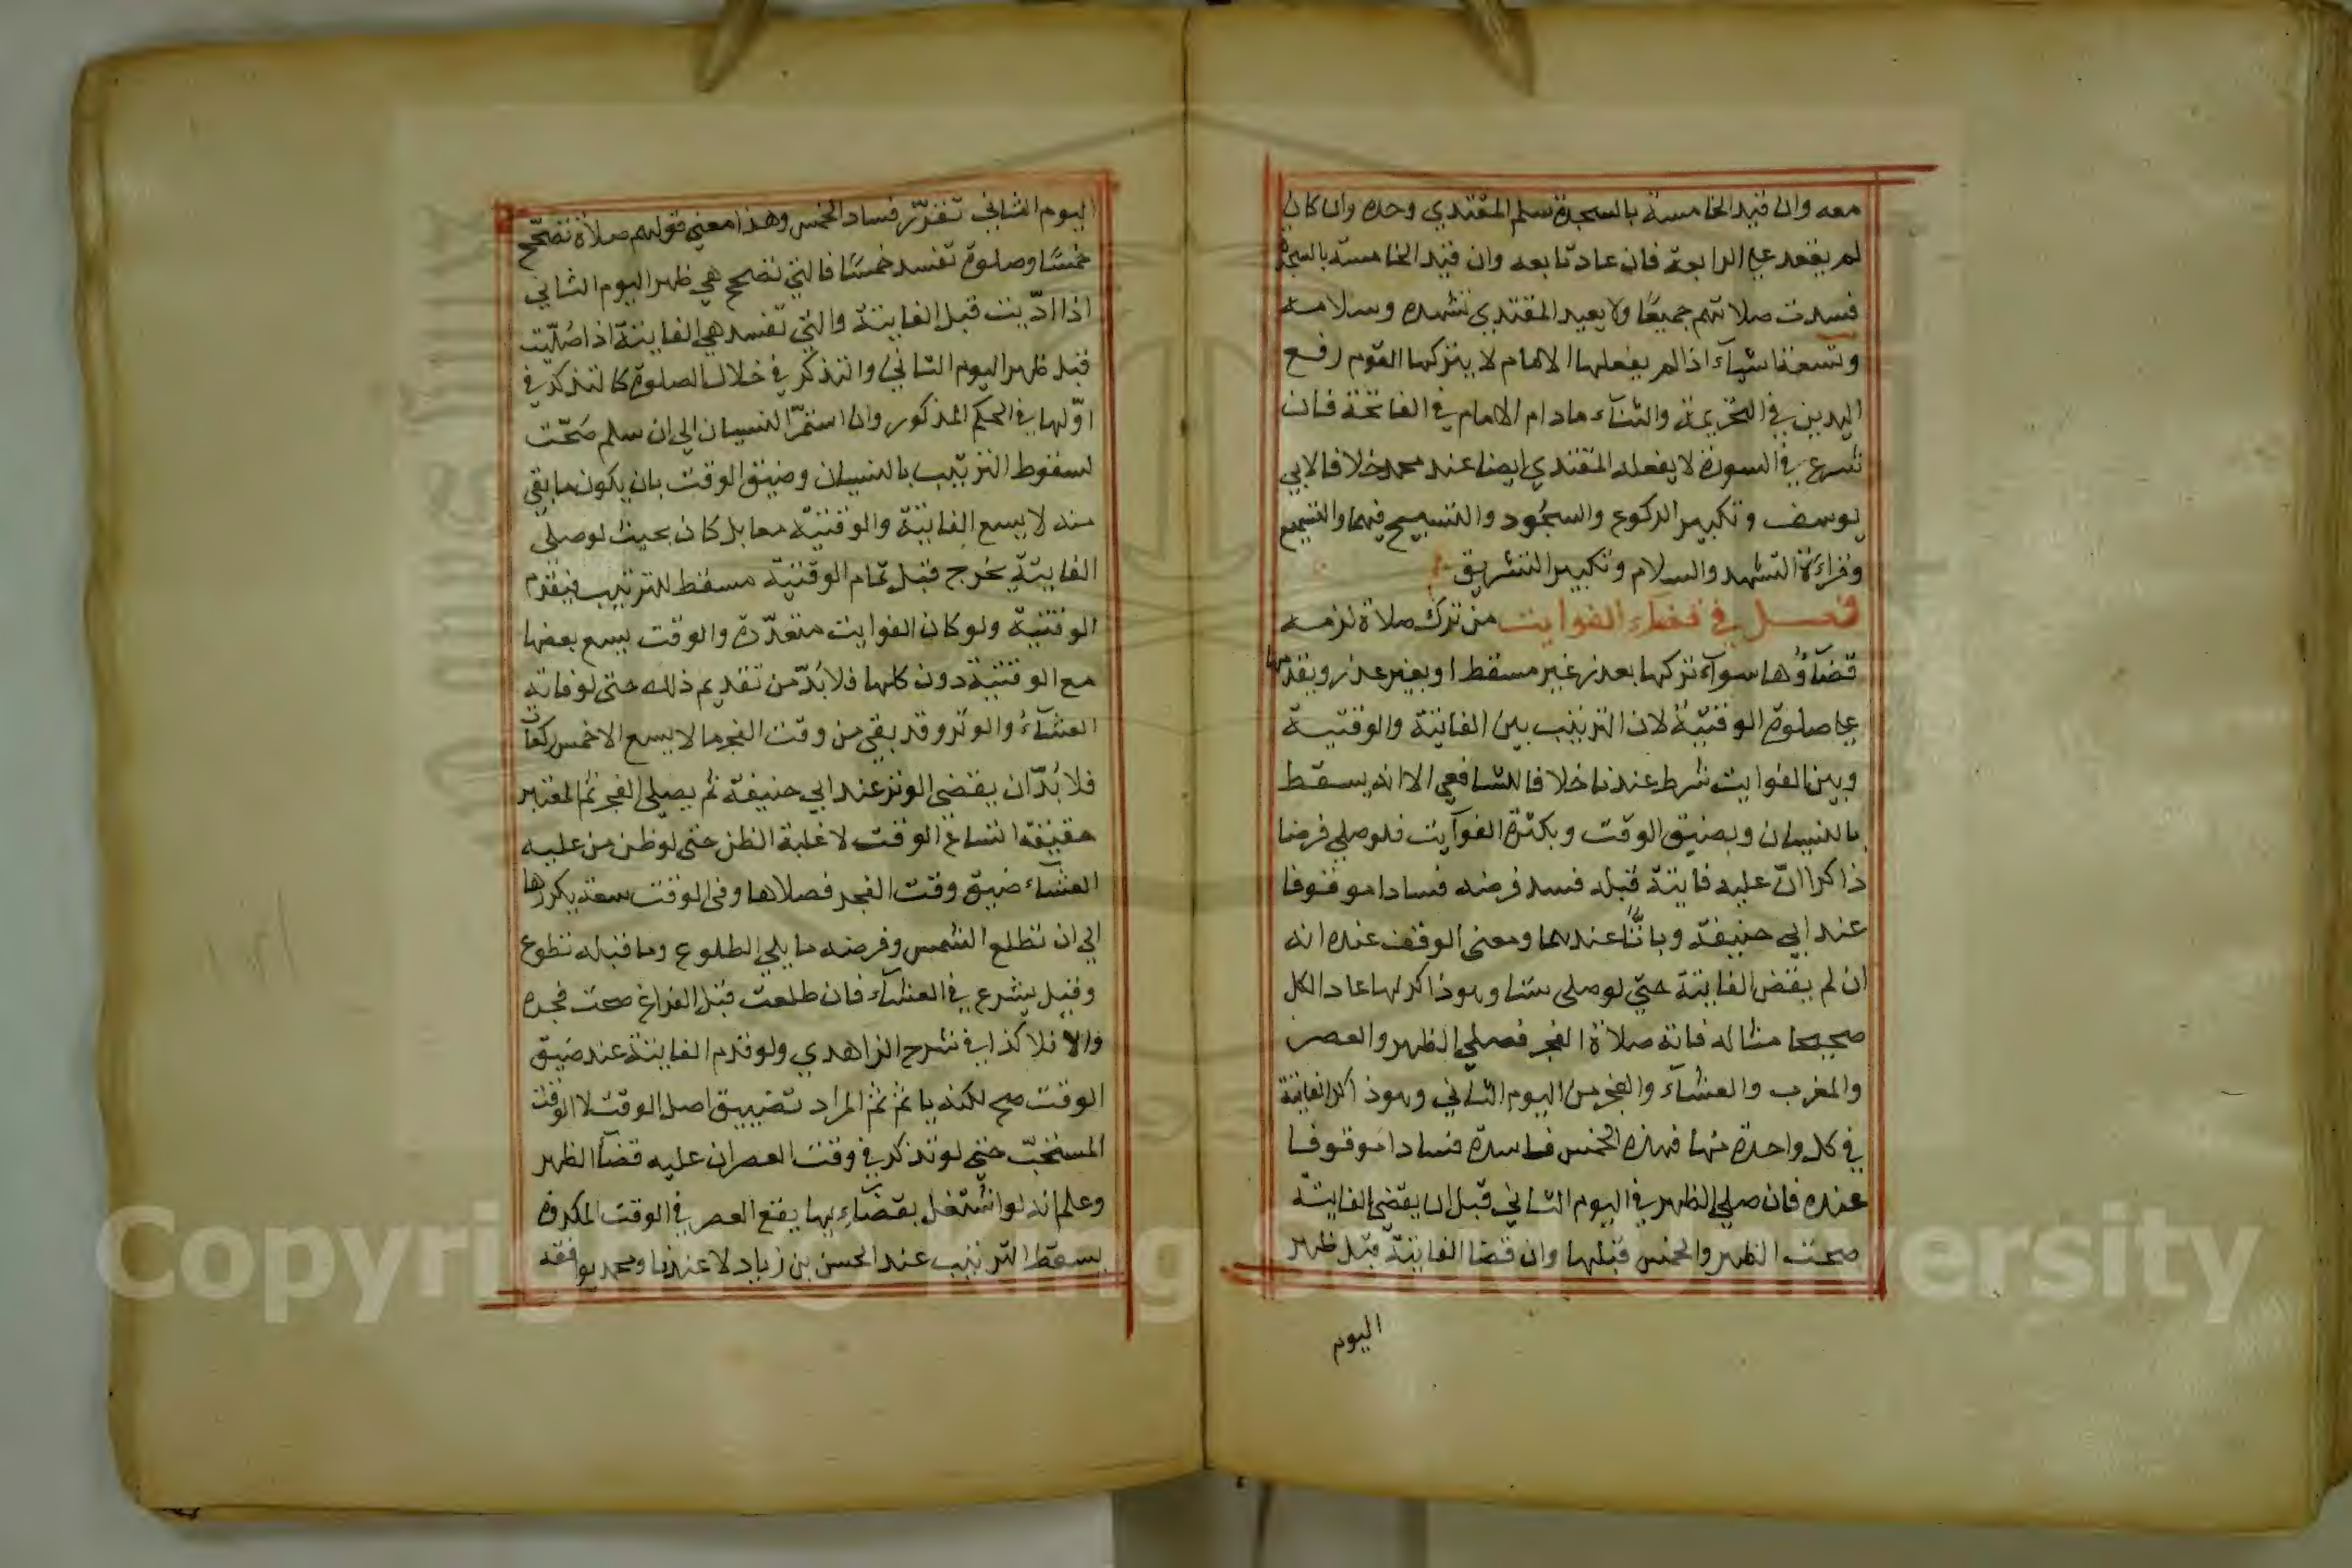 معه وان قيد الخامسة بالسجدة سلم المقتدي وحده وان كان
لم يقعد على الرابعة فان عاد تابعه وان قيد الخامسة بالسجدة
فسدت صلاتهم جميعًا ولا يعيد المقتدي تشهده وسلامه
وتسعة اشيآء اذا لم يفعلها الامام لا يتركها القوم رفع
اليدين في التحريمة والثنآء مادام الامام في الفاتحة فان
شرع في السورة لا يفعله المقتدي ايضا عند محمد خلافا لابي
يوسف وتكبير الركوع والسجود والتسبيح فيهما والتسميع
وقراءة التشهد والسلام وتكبير التشريق
فصل في قضاء الفوايت من ترك صلاة لزمه
قضآؤها سوآء تركها بعذر غير مسقط او بغير عذر ويقدمها
على صلوة الوقتيّة لان الترتيب بين الفايتة والوقتية
وبين الفوايت شرط عندنا خلافا للشافعي الا انه يسقط
بالنسيان وبضيق الوقت وبكثرة الفوآيت فلو صلى فرضا
ذاكرا انّ عليه فايتة قبله فسد فرضه فسادا موقوفا
عند ابي حنيفة وباتًّا عندهما ومعنى الوقف عنده انه
ان لم يقض الفايتة حتى لو صلى ستا وهو ذاكر لها عاد الكل
صحيحا مثاله فاته صلاة الفجر فصلى الظهر والعصر
والمغرب والعشآء والفجر من اليوم الثاني وهو ذاكر الفايتة
في كل واحدة منها فهذه الخمس فاسدة فسادا موقوفا
عنده فان صلى الظهر في اليوم الثاني قبل ان يقضي الفايتة
صحت الظهر والخمس قبلها وان قضا الفايتة قبل ظهر
اليوم
اليوم الثاني تقرّر فساد الخمس وهذا معنى قولهم صلاة تصحّح
خمسًا وصلوة تفسد خمسًا فالتي تصحح هي ظهر اليوم الثاني
اذا ادّيت قبل الفايتة والتي تفسد هي الفايتة اذا صُلّيت
قبل ظهر اليوم الثاني والتذكر في خلال الصلوة كالتذكّر في
اوّلها في الحكم المذكور وان استمرّ النسيان الى ان سلم صحّت
لسقوط الترتيب بالنسيان وضيق الوقت بان يكون ما بقي
منه لا يسع الفايتة والوقتيّة معا بل كان بحيث لو صلى
الفايتة يخرج قبل تمام الوقتيّة مسقط للترتيب فيقدم
الوقتيّة ولو كان الفوايت متعدّدة والوقت يسع بعضها
مع الوقتية دون كلها فلا بُدّ من تقديم ذلك حتى لو فاته
العشآء والوتر وقد بقي من وقت الفجر ما لا يسع الا خمس ركعات
فلا بُدّ ان يقضي الوتر عند ابي حنيفة ثم يصلي الفجر ثم المعتبر
حقيقة اتساع الوقت لا غلبة الظن حتى لو ظن من عليه
العشآء ضيق وقت الفجر فصلاها وفي الوقت سعة يكررها
الى ان تطلع الشمس وفرضه ما يلي الطلوع وما قبله تطوع
وقيل يشرع في العشآء فان طلعت قبل الفراغ صحت فجره
والا فلا كذا في شرح الزاهدي ولو قدم الفايتة عند ضيق
الوقت صح لكنه ياثم ثم المراد تضييق اصل الوقت لا الوقت
المستحبّ حتى لو تذكر في وقت العصر ان عليه قضآء الظهر
وعلم انه لو اشتغل بقضآئها يقع العصر في الوقت المكروه
يسقط الترتيب عند الحسن بن زياد لا عندنا ومحمد يوافقه